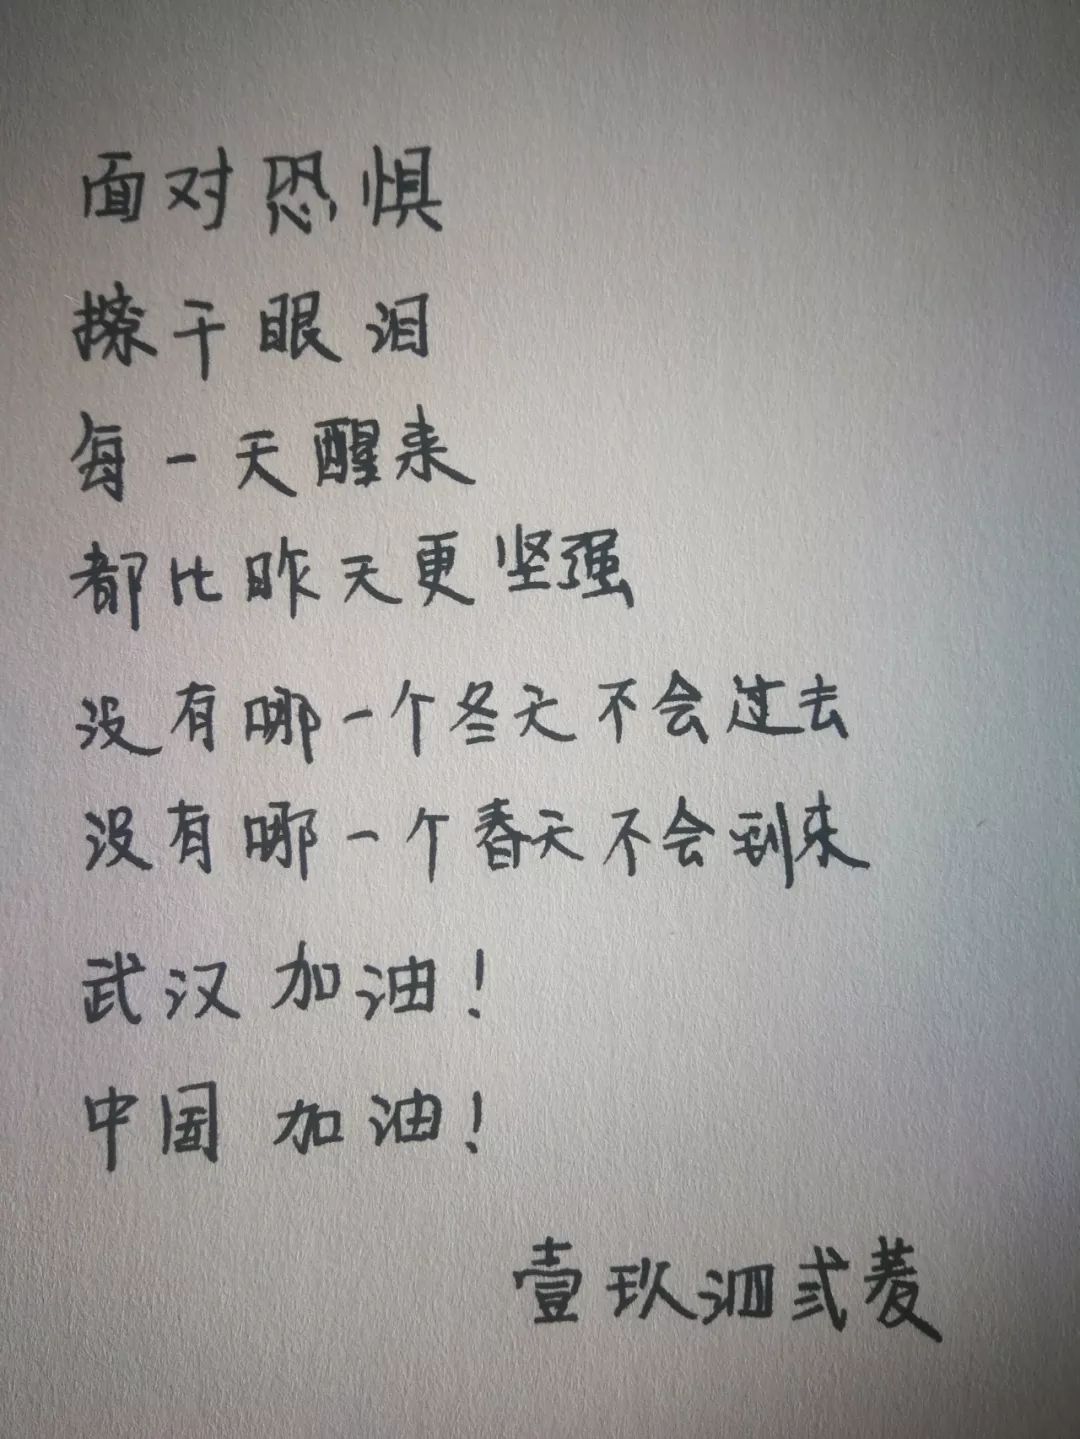 面对恐惧
撩干眼泪
每一天醒来
都比昨天更坚强
没有哪一个冬天不会过去
没有哪一个春天不会到来
武汉加油!
中国加油!
壹玖泗弍菱